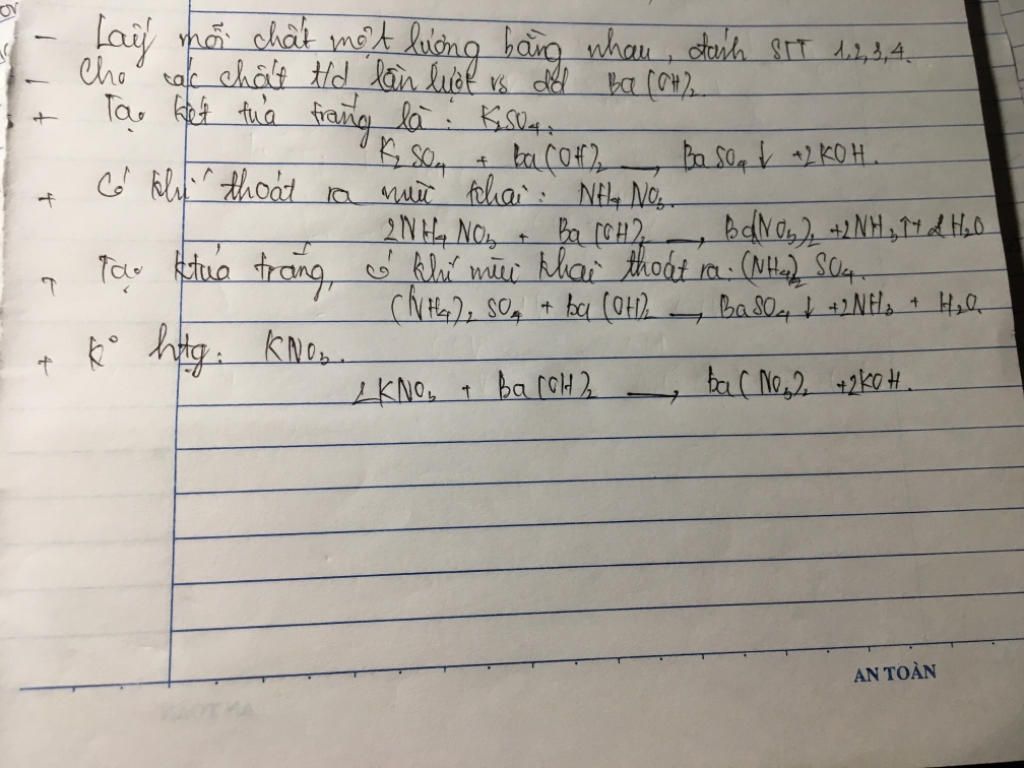 - Lấy mỗi chất một lượng bằng nhau, đánh STT 1,2,3,4.
- Cho các chất t/d lần lượt vs dd Ba(OH)2.
+ Tạo kết tủa trắng là: K2SO4.
K2SO4 + Ba(OH)2 → BaSO4↓ +2KOH.
+ Có khí thoát ra mùi khai: NH4NO3.
2NH4NO3 + Ba(OH)2 → Ba(NO3)2 +2NH3↑+2H2O
+ Tạo ktủa trắng, có khí mùi khai thoát ra: (NH4)2SO4.
(NH4)2SO4 + Ba(OH)2 → BaSO4↓ +2NH3 + H2O.
+ K° htg: KNO3.
2KNO3 + Ba(OH)2 → Ba(NO3)2 +2KOH.
AN TOÀN